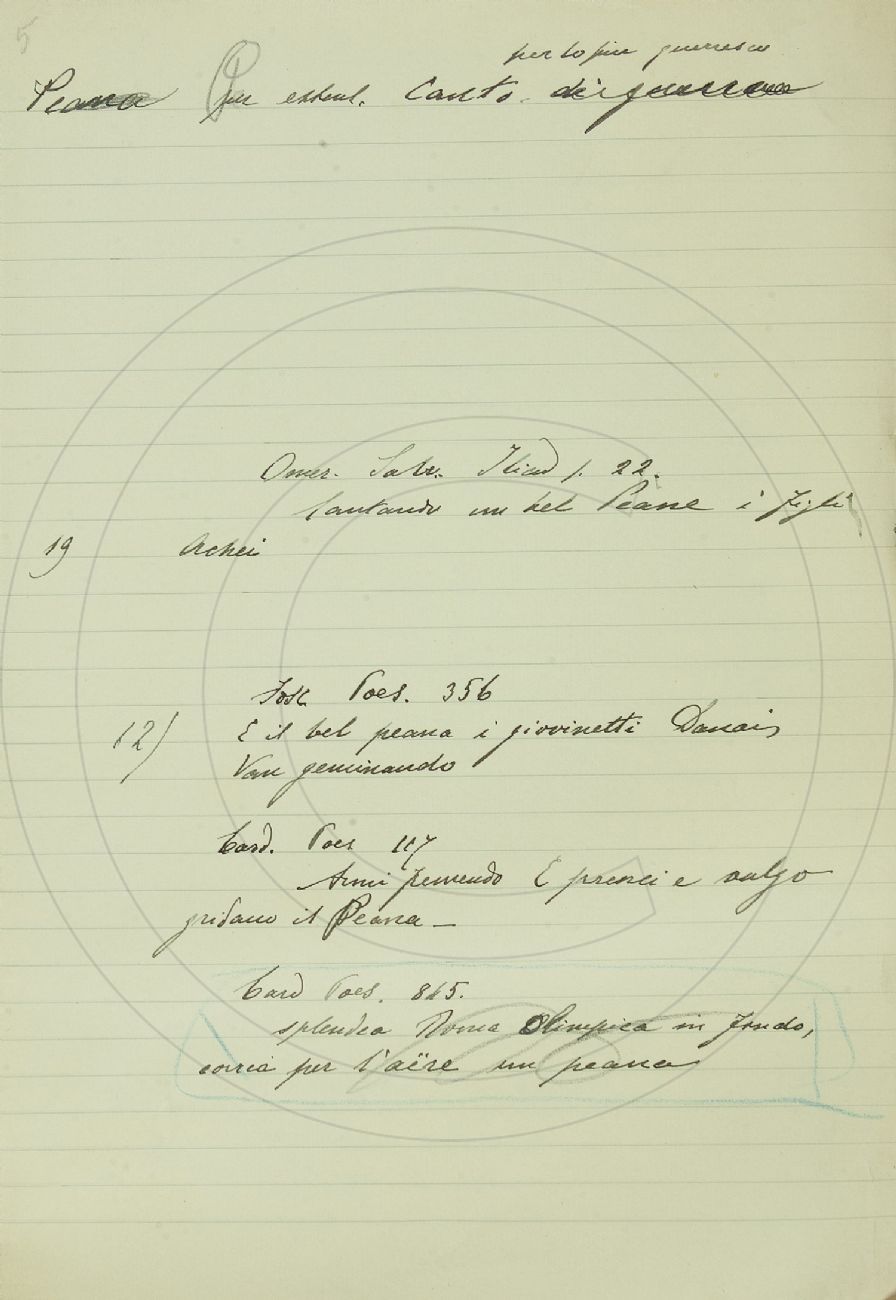 5
per lo più guerresco
Peana Per estens. Canto di guerra
Omer. Salv. Iliad 1. 22.
Cantando un bel Peane i Figli
19 Achei
Fosc. Poes. 356
12) E il bel peana i giovinetti Danai
Van geminando
Card. Poes 117
Armi fremendo E prenci e vulgo
gridano il Peana —
Card Poes. 865.
splendea Roma Olimpica in fondo,
correa per l'aëre un peana